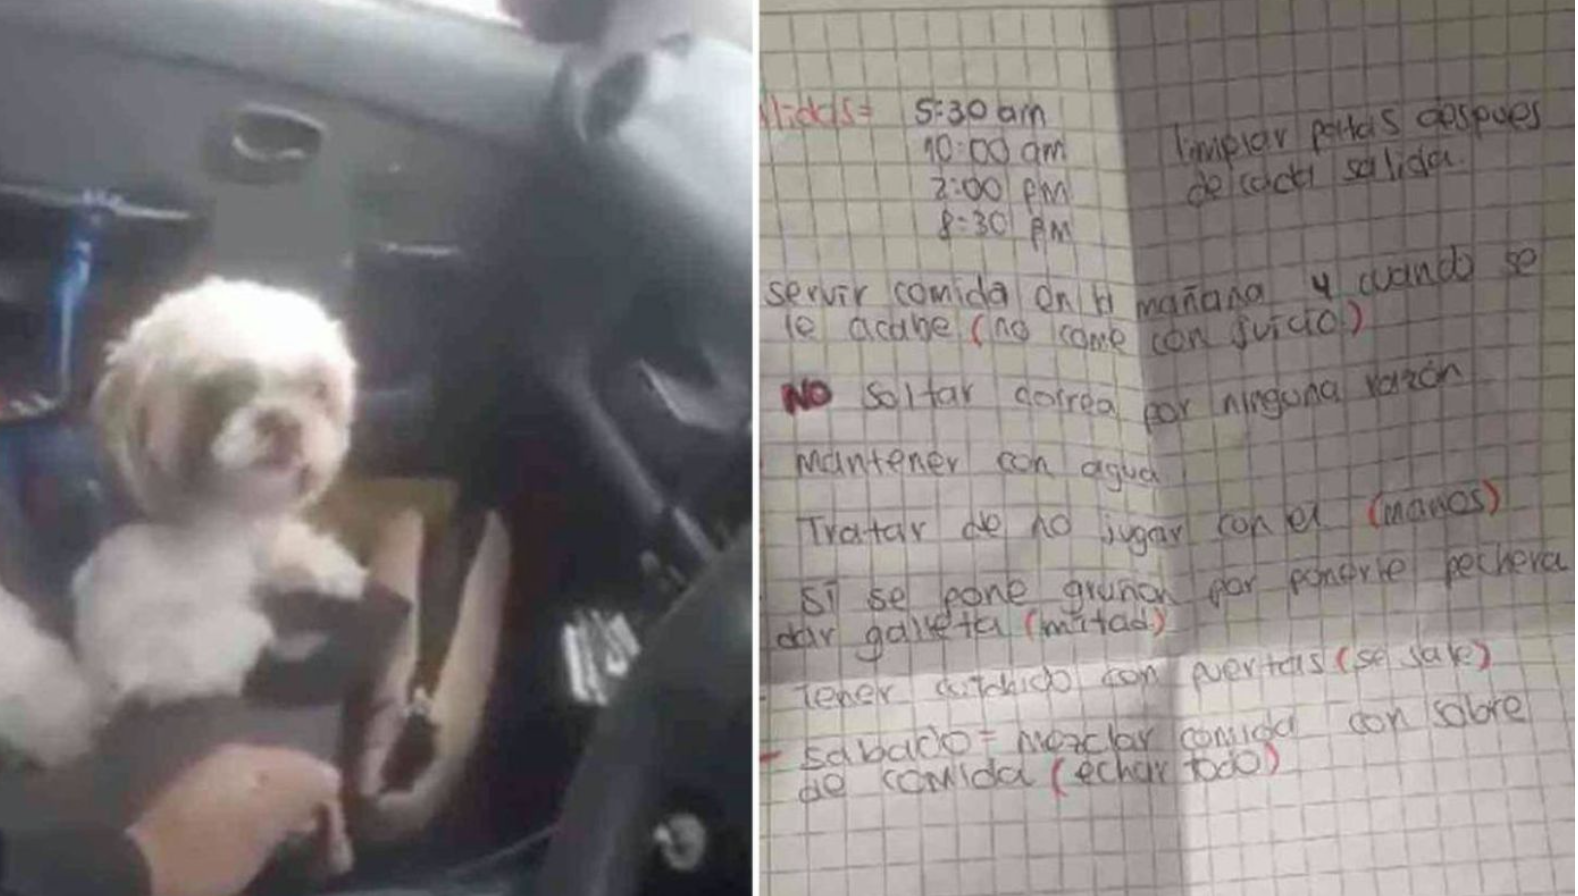 lidas= 5:30 am
10:00 am
2:00 PM
8:30 PM
limpiar patas despues
de cada salida.
servir comida en la mañana y cuando se
le acabe (no come con juicio)
NO soltar correa por ninguna razón
mantener con agua
Tratar de no jugar con el (manos)
si se pone gruñon por ponerle pechera
dar galleta (mitad)
- Tener cuidado con puertas (se sale)
- sabado= mezclar comida con sobre
de comida (echar todo)